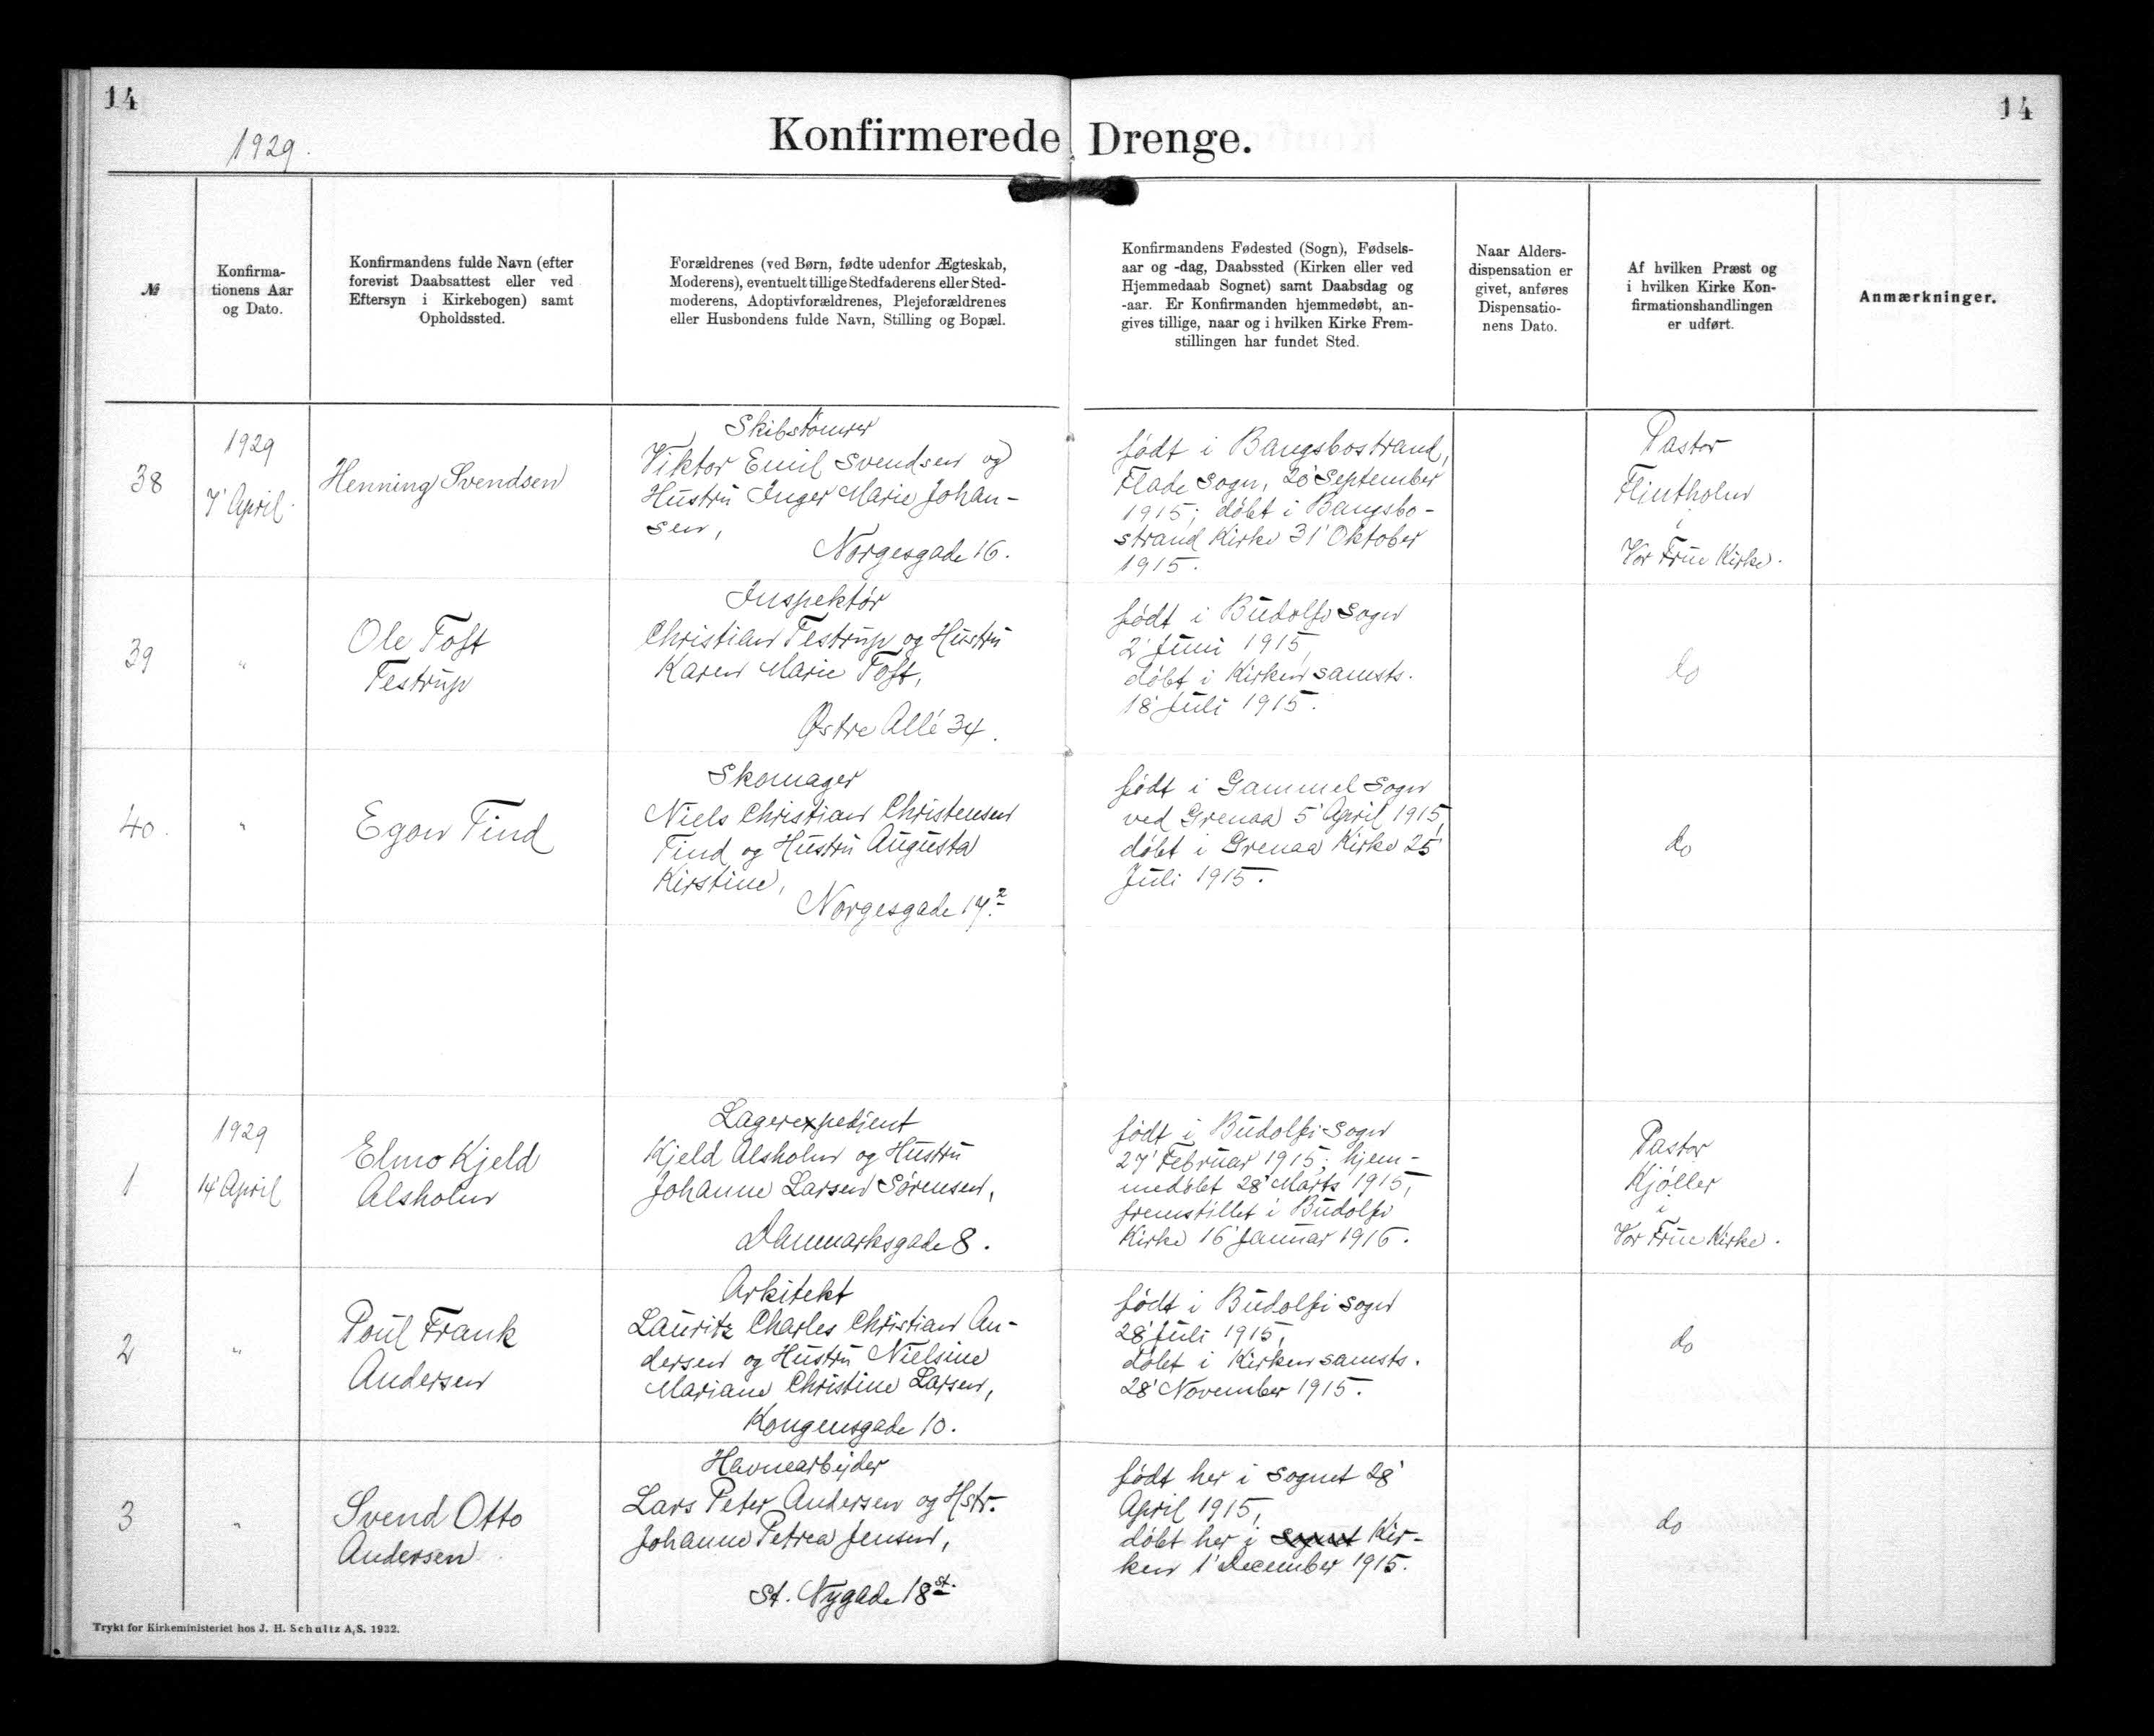 14
14
1929.
Konfirmerede Drenge.
№
Konfirma-
tionens Aar
og Dato.
Konfirmandens fulde Navn (efter
forevist Daabsattest eller ved
Eftersyn i Kirkebogen) samt
Opholdssted.
Forældrenes (ved Børn, fødte udenfor Ægteskab,
Moderens), eventuelt tillige Stedfaderens eller Sted-
moderens, Adoptivforældrenes, Plejeforældrenes
eller Husbondens fulde Navn, Stilling og Bopæl.
Konfirmandens Fødested (Sogn), Fødsels-
aar og -dag, Daabssted (Kirken eller ved
Hjemmedaab Sognet) samt Daabsdag og
-aar. Er Konfirmanden hjemmedøbt, an-
gives tillige, naar og i hvilken Kirke Frem-
stillingen har fundet Sted.
Naar Alders-
dispensation er
givet, anføres
Dispensatio-
nens Dato.
Af hvilken Præst og
i hvilken Kirke Kon-
firmationshandlingen
er udført.
Anmærkninger.
38
1929
7' April.
Henning Svendsen
Skibstømrer
Viktor Emil Svendsen og
Hustru Inger Marie Johan-
sen,
Norgesgade 16.
født i Bangsbostrand,
Flade Sogn, 20' September
1915; døbt i Bangsbo-
strand Kirke 31' Oktober
1915.
Pastor
Flintholm
i
Vor Frue Kirke.
39
"
Ole Toft
Testrup
Inspektør
Christian Testrup og Hustru
Karen Marie Toft,
Østre Allé 34.
født i Budolfi Sogn
2' Juni 1915,
døbt i Kirken samsts.
18' Juli 1915.
do
40.
"
Egon Tind
Skomager
Niels Christian Christensen
Tind og Hustru Augusta
Kirstine,
Norgesgade 17.2
født i Gammel Sogn
ved Grenaa 5' April 1915,
døbt i Grenaa Kirke 25'
Juli 1915.
do
1
1929
14' April
Elmo Kjeld
Alsholm
Lagerexpedient
Kjeld Alsholm og Hustru
Johanne Larsen Sørensen,
Danmarksgade 8.
født i Budolfi Sogn
27' Februar 1915; hjem-
medøbt 28' Marts 1915,
fremstillet i Budolfi
Kirke 16' Januar 1916.
Pastor
Kjøller
i
Vor Frue Kirke.
2
"
Poul Frank
Andersen
Arkitekt
Lauritz Charles Christian An-
dersen og Hustru Nielsine
Mariane Christine Larsen,
Kongensgade 10.
født i Budolfi Sogn
28' Juli 1915,
døbt i Kirken samsts.
28' November 1915.
do
3
"
Svend Otto
Andersen
Havnearbejder
Lars Peter Andersen og Hstr.
Johanne Petrea Jensen,
St. Nygade 18 st.
født her i Sognet 28'
April 1915,
døbt her i Sognet Kir-
ken 1' December 1915.
do
Trykt for Kirkeministeriet hos J. H. Schultz A/S. 1932.